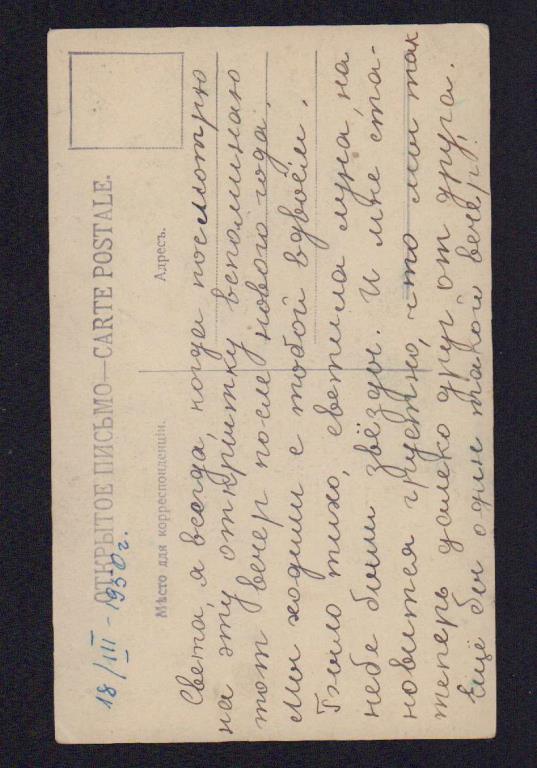 ОТКРЫТОЕ ПИСЬМО—CARTE POSTALE.
18/III - 1950 г.
Мѣсто для корреспонденціи.
Адресъ.
Света я всегда, когда посмотрю
на эту открытку вспоминаю
тот вечер после нового года.
Мы ходили с тобой вдвоём.
Было тихо, светила луна, на
небе были звёзды. И мне ста-
новится грустно, что мы так
теперь далеко друг от друга.
Ещё бы один такой вечер!